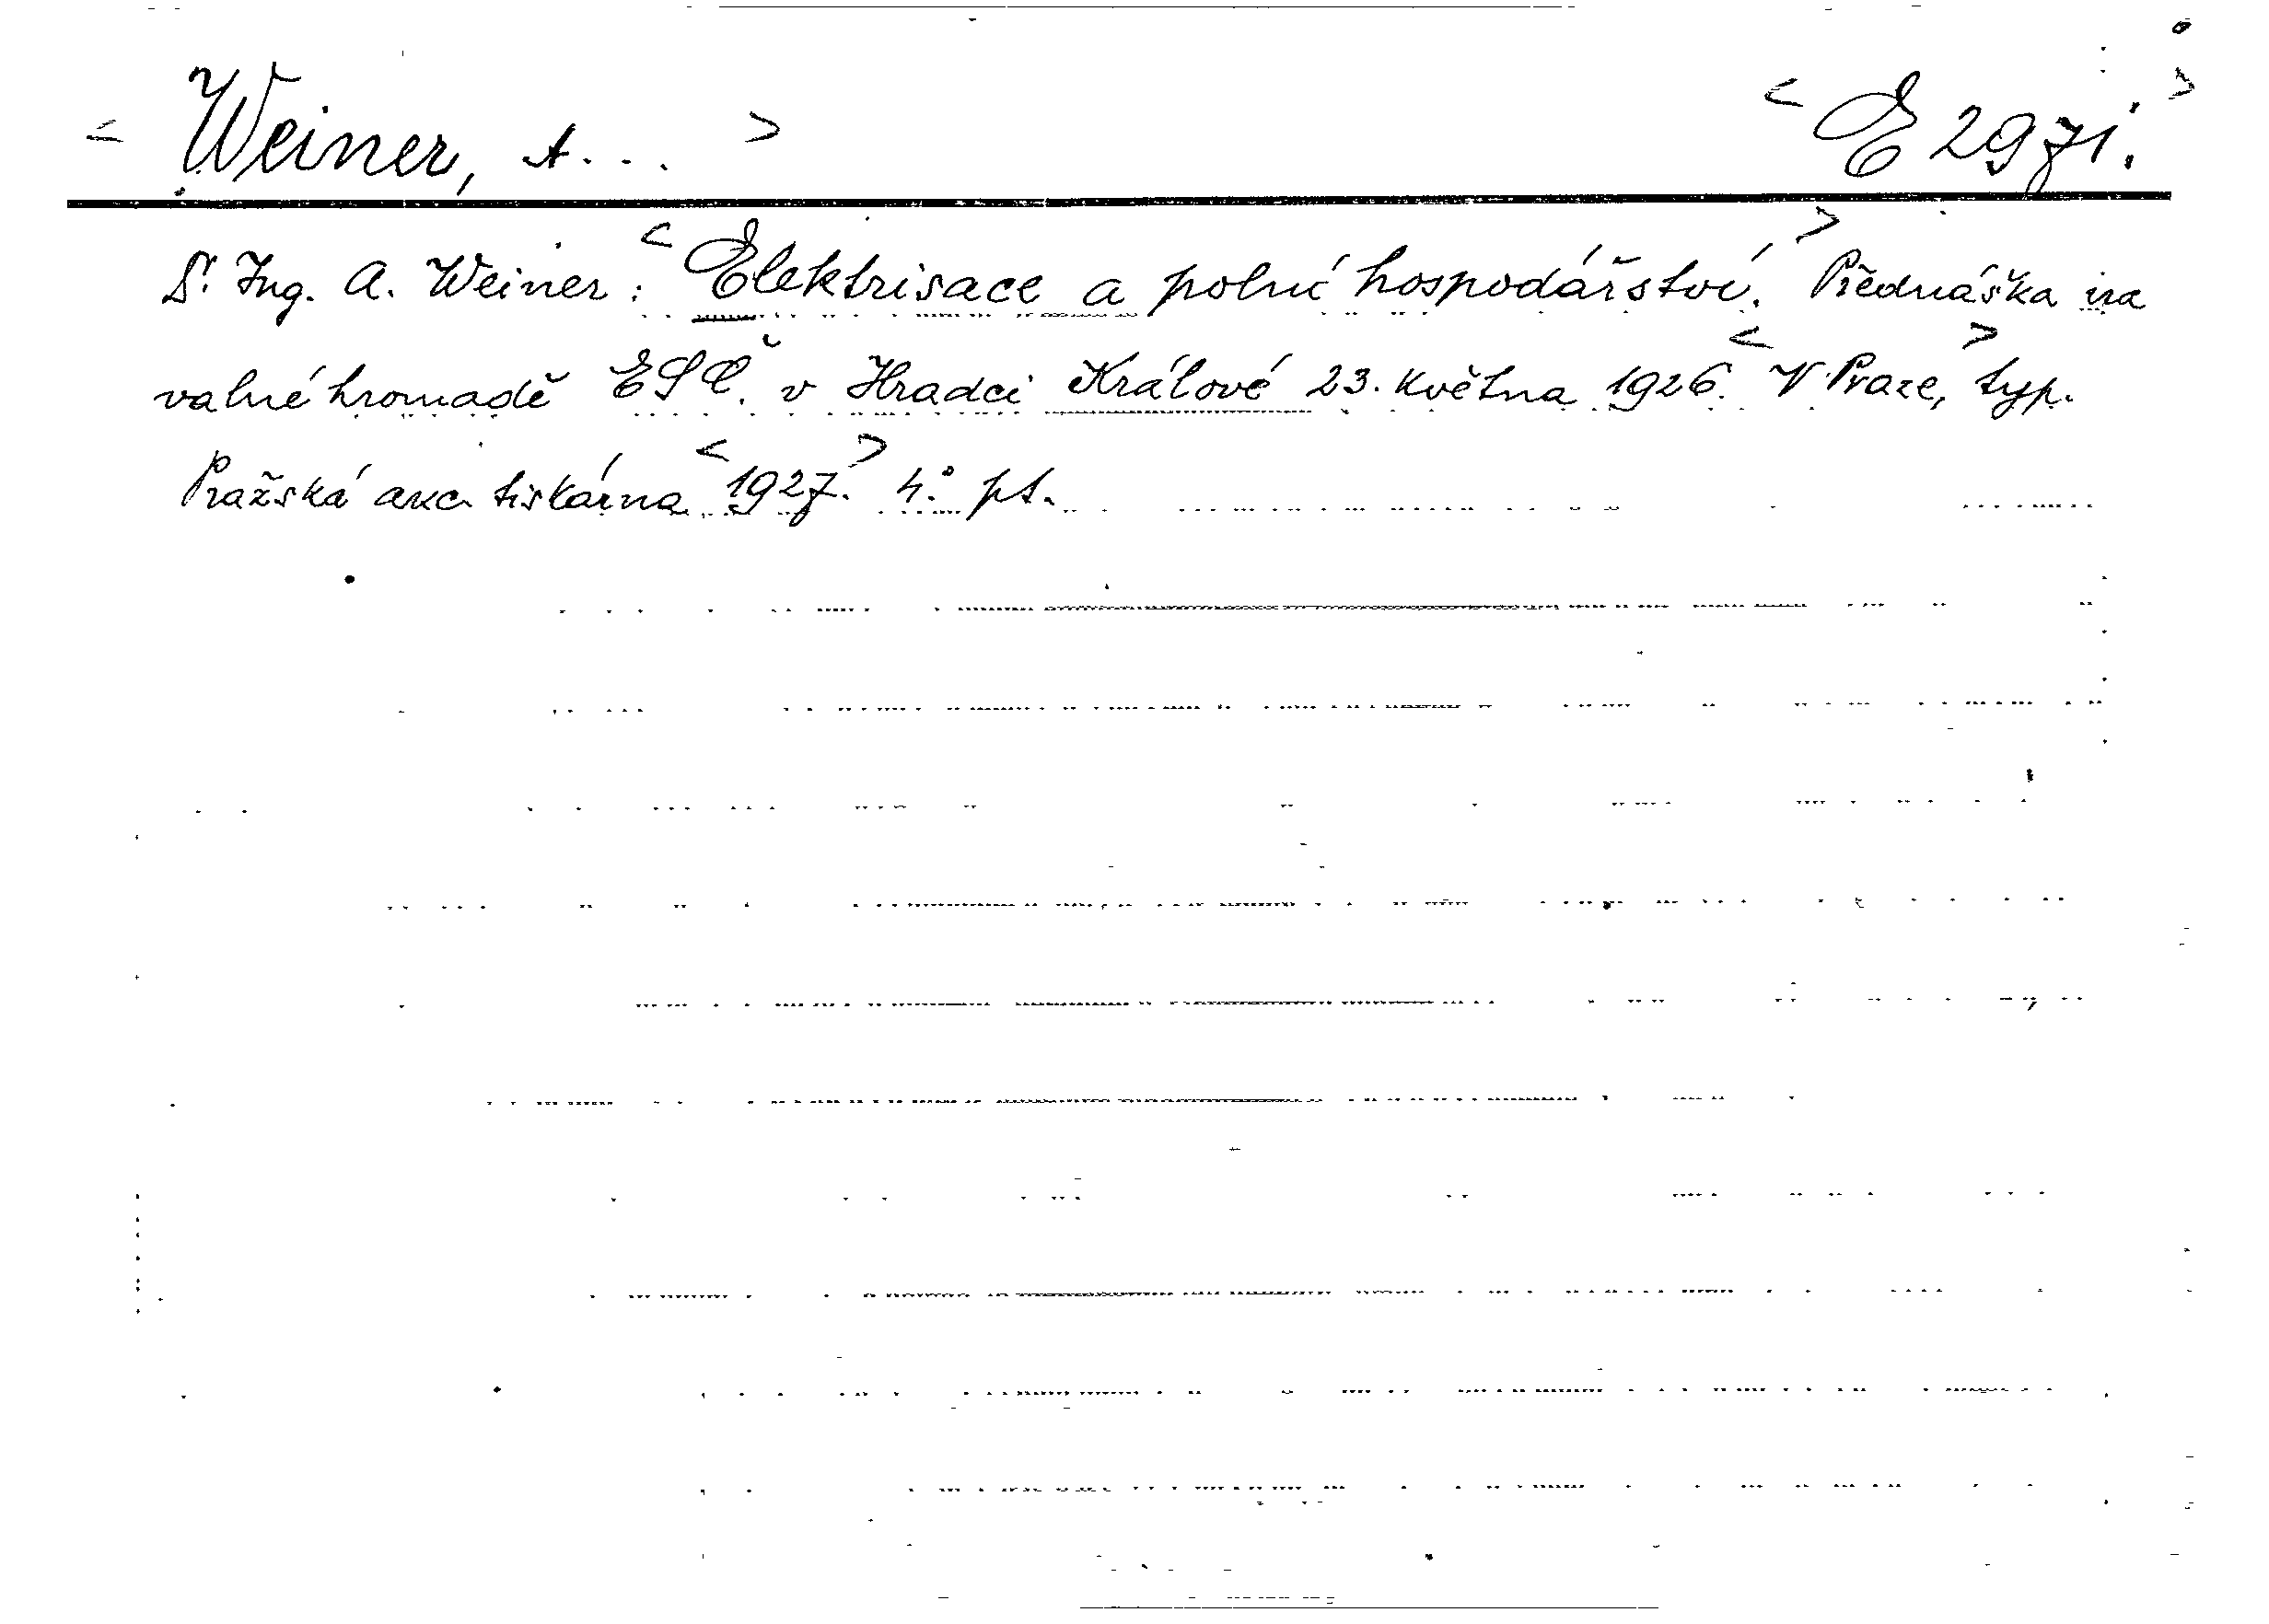 < Weiner, A... > < E 2971. >
Dr. Ing. A. Weiner: < Elektrisace a polní hospodářství. > Přednáška na
valné hromadě ESČ. v Hradci Králové 23. května 1926. < V Praze, > typ.
Pražská akc. tiskárna < 1927. > 4° pt.